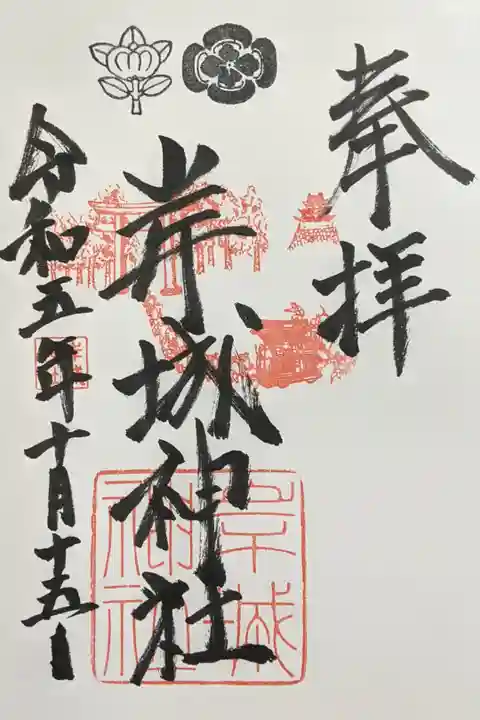 奉拝
岸城神社
岸城
神社
令和五年十月十五日